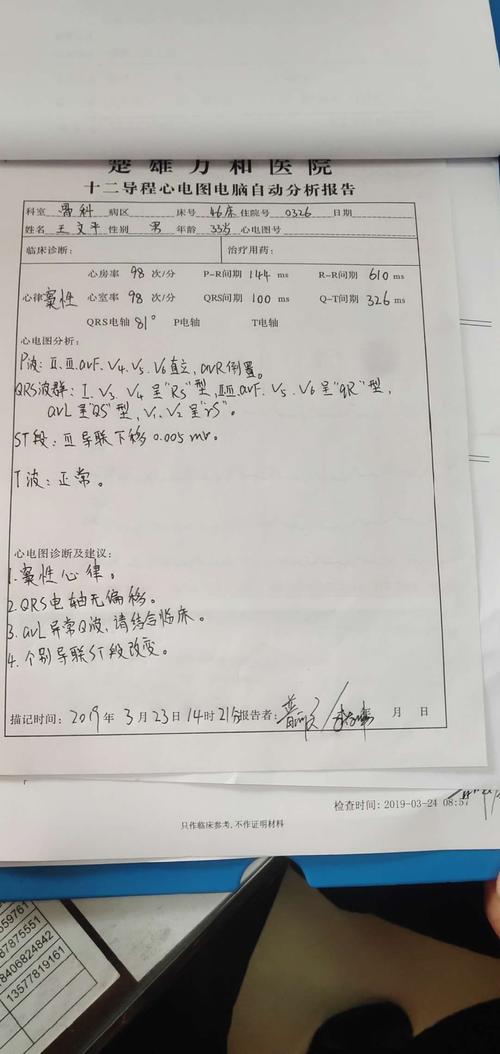 楚雄万和医院
十二导程心电图电脑自动分析报告
科室 骨科 病区 床号 46床 住院号 0326 日期
姓名 王文平 性别 男 年龄 33岁 心电图号
临床诊断: 治疗用药:
心房率 98 次/分 P-R间期 144 ms R-R间期 610 ms
心律 窦性 心室率 98 次/分 QRS间期 100 ms Q-T间期 326 ms
QRS电轴 81° P电轴 T电轴
心电图分析:
P波: II.III.avF.V4.V5.V6直立, avR倒置。
QRS波群: I.V3.V4呈"Rs"型, II.III.avF.V5.V6呈"qR"型,
avL呈"QS"型, V1.V2呈"rS"。
ST段: III导联下移0.005mv。
T波: 正常。
心电图诊断及建议:
1.窦性心律。
2.QRS电轴无偏移。
3.avL异常Q波,请结合临床。
4.个别导联ST段改变。
描记时间: 2019年3月23日14时21分 报告者: 年 月 日
检查时间: 2019-03-24 08:57
只作临床参考,不作证明材料
559761
87875551
8406824842
13577819161